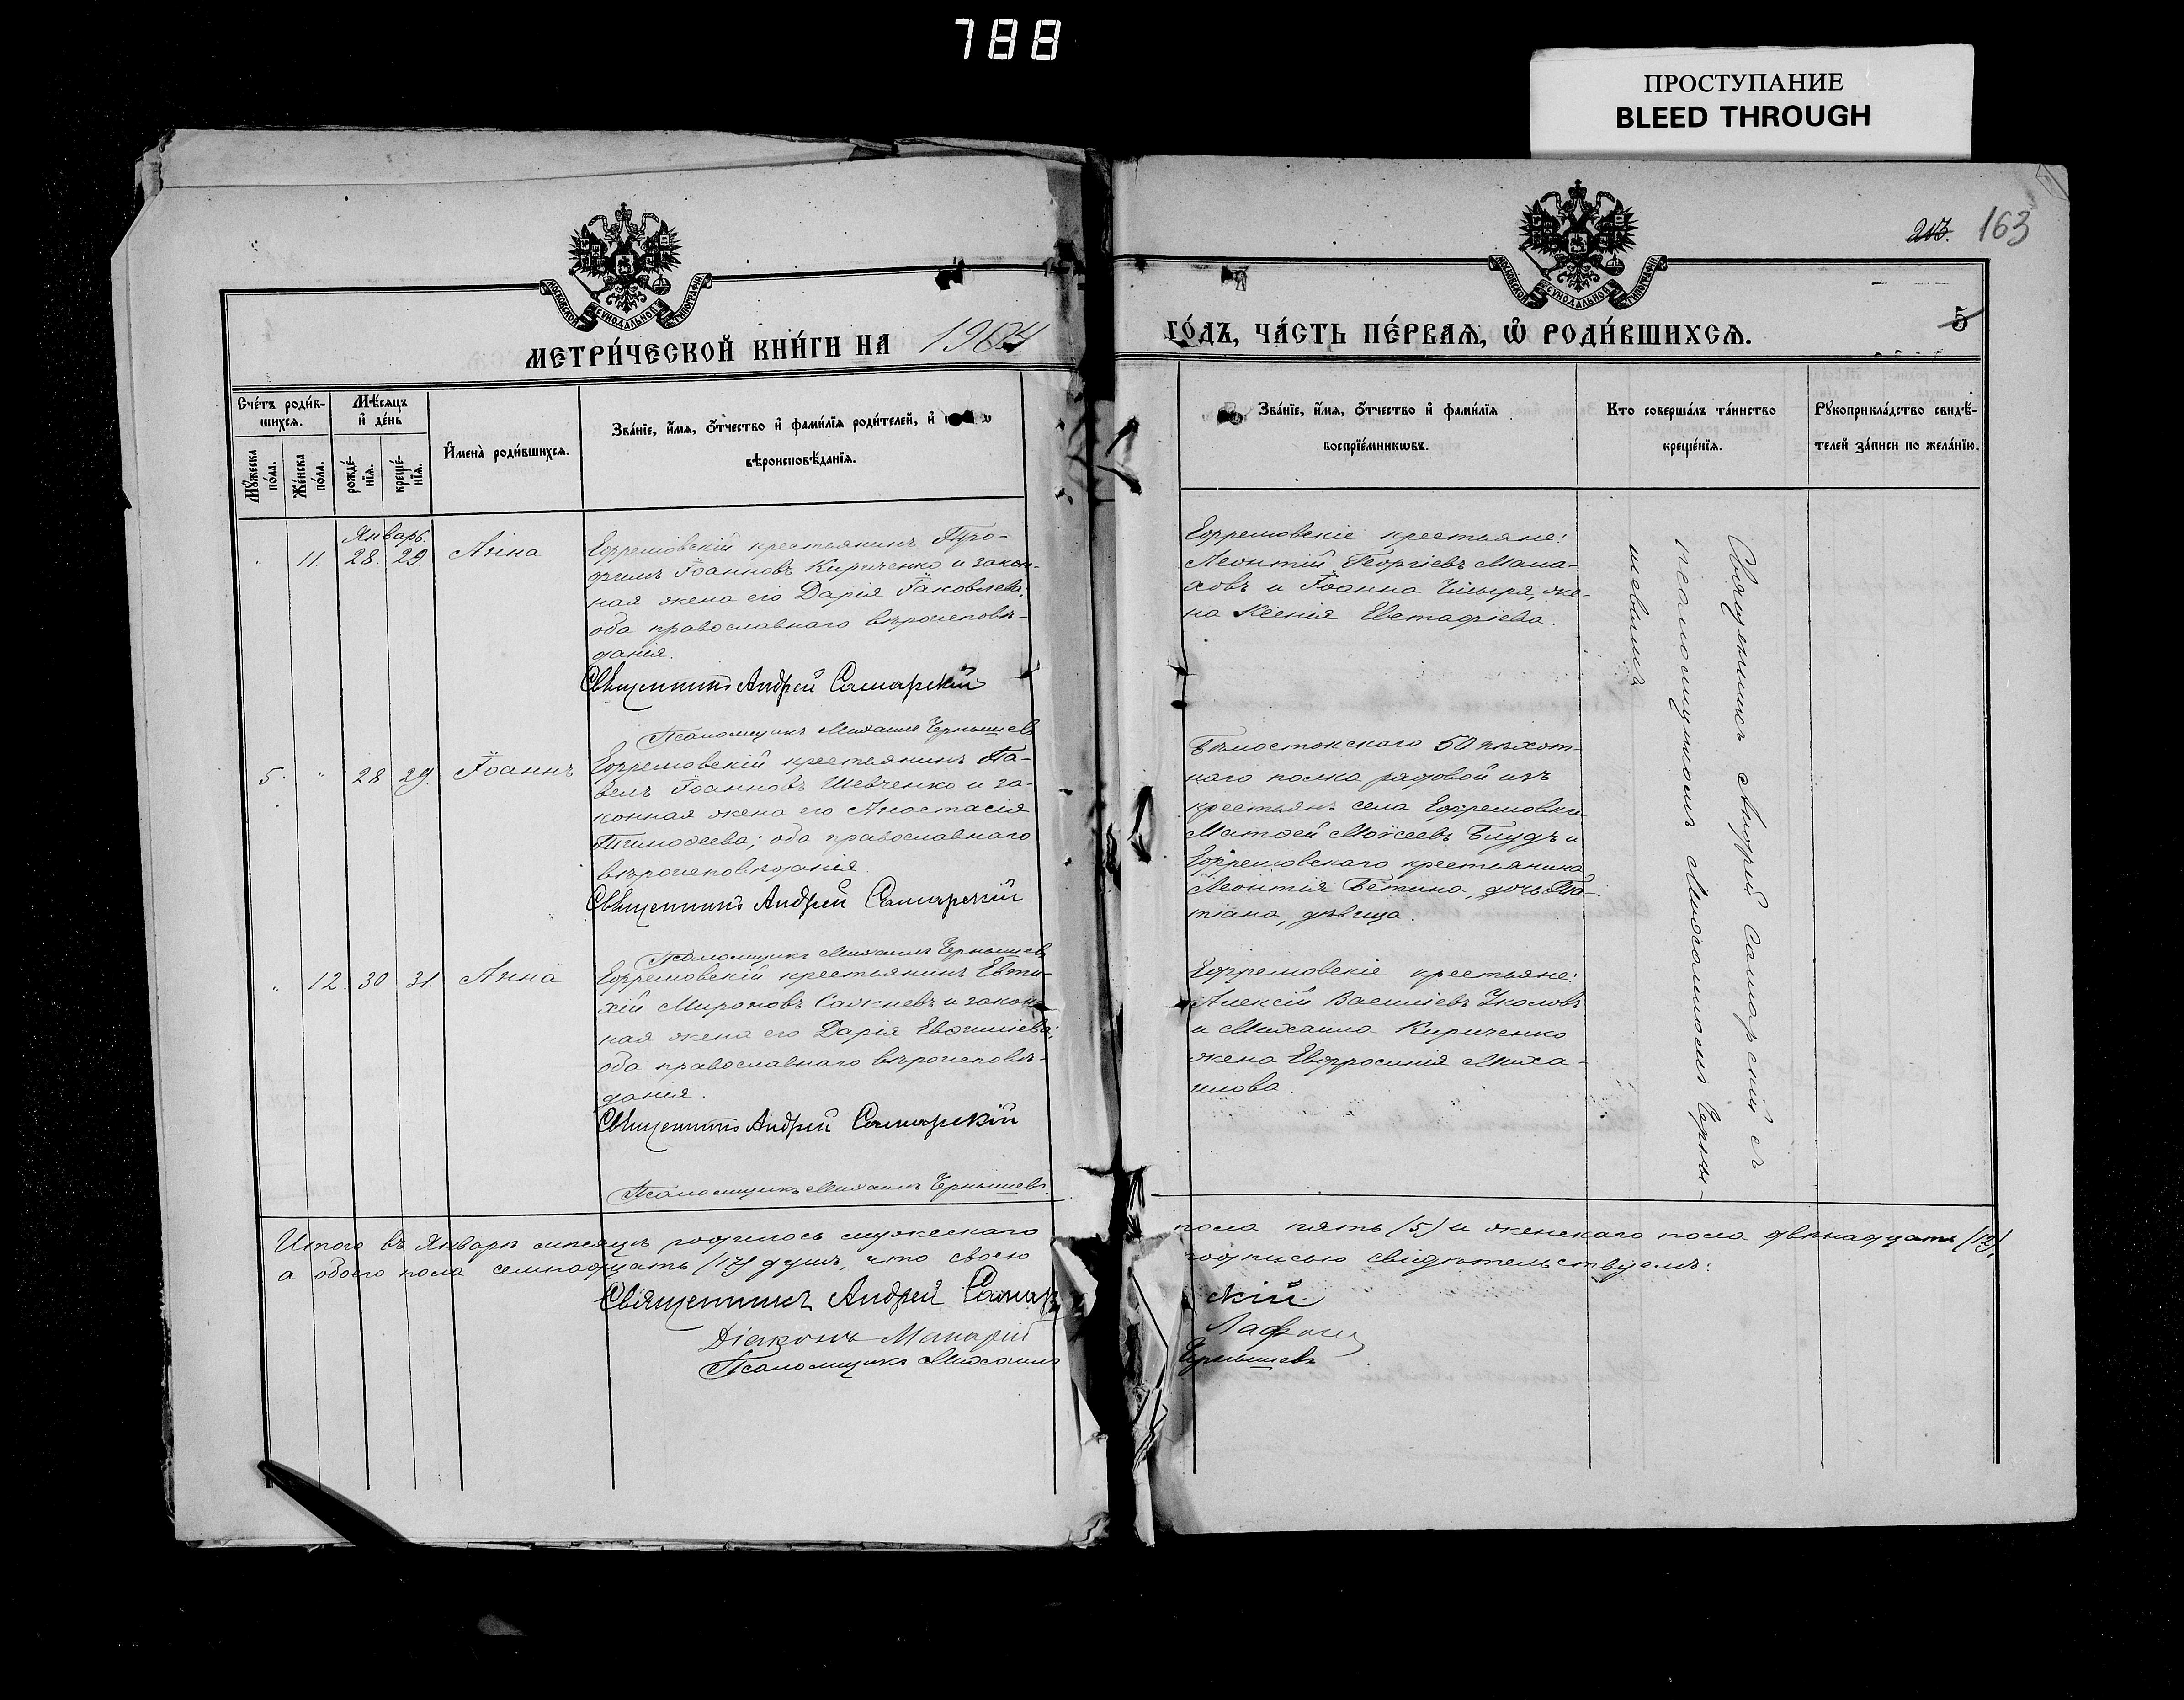 788
ПРОСТУПАНИЕ
BLEED THROUGH
213. 163
МОСКОВСКОЙ СѴНОДАЛЬНОЙ ТИПОГРАФІИ
МОСКОВСКОЙ СѴНОДАЛЬНОЙ ТИПОГРАФІИ
МЕТРИ́ЧЕСКОЙ КНИ́ГИ НА 1904
ГО́ДЪ, ЧА́СТЬ ПЕ́РВАЯ, Ѽ РОДИ́ВШИХСЯ.
5
Сче́тъ роди́в-
шихся.
Мѣ́сяцъ
и҆ де́нь
Му́жеска
по́ла.
Же́нска
по́ла.
рожде́-
нїя.
креще́-
нїя.
И҆мена̀ роди́вшихся.
Зва́нїе, и҆́мя, ѻ҆́тчество и҆ фамѝлїя роди́телей, и҆
вѣроисповѣ́данїя.
Зва́нїе, и҆́мя, ѻ҆́тчество и҆ фами́лїя
воспрїе́мникѡвъ.
Кто соверша́лъ та́инство
креще́нїя.
Рꙋкоприкла́дство свидѣ́-
телей за́писи по жела́нїю.
Январь.
" 11. 28. 29. Анна
Ефремовскій крестьянинъ Тро-
фимъ Іоанновъ Кириченко и закон-
ная жена его Дарія Іаковлева,
оба православнаго вѣроисповѣ-
данія.
Священникъ Андрей Самарскій
Псаломщикъ Михаилъ Чернышевъ
Ефремовскіе крестьяне:
Леонтій Георгіевъ Мана-
ховъ и Іоанна Чмыря, же-
на Ксенія Евстафіева.
5. " 28 29. Іоаннъ
Ефремовскій крестьянинъ Па-
велъ Іоанновъ Шевченко и за-
конная жена его Анастасія
Тимофеева; оба православнаго
вѣроисповѣданія
Священникъ Андрей Самарскій
Псаломщикъ Михаилъ Чернышевъ
Бѣлостокскаго 50 пѣхот-
наго полка рядовой изъ
крестьянъ села Ефремовки
Матфей Моѵсеевъ Блудъ и
Ефремовскаго крестьянина
Леонтія Бетина, дочь Та-
тіана, дѣвица.
" 12. 30 31. Анна
Ефремовскій крестьянинъ Евти-
хій Мироновъ Сажневъ и закон-
ная жена его Дарія Евфиміева;
оба православнаго вѣроисповѣ-
данія.
Священникъ Андрей Самарскій
Псаломщикъ Михаилъ Чернышевъ.
Ефремовскіе крестьяне:
Алексій Василіевъ Уколовъ
и Михаила Кириченко
жена Евфросинія Миха-
илова.
Священникъ Андрей Самарскій съ
псаломщикомъ Михаиломъ Черны-
шевымъ
Итого въ Январѣ мѣсяцѣ родилось мужескаго пола пять (5) и женскаго пола двѣнадцать (12),
а обоего пола семнадцать (17) душъ, что своею подписью свидѣтельствуемъ:
Священникъ Андрей Самарскій
Діаконъ Макарій
Псаломщикъ Михаилъ Чернышевъ